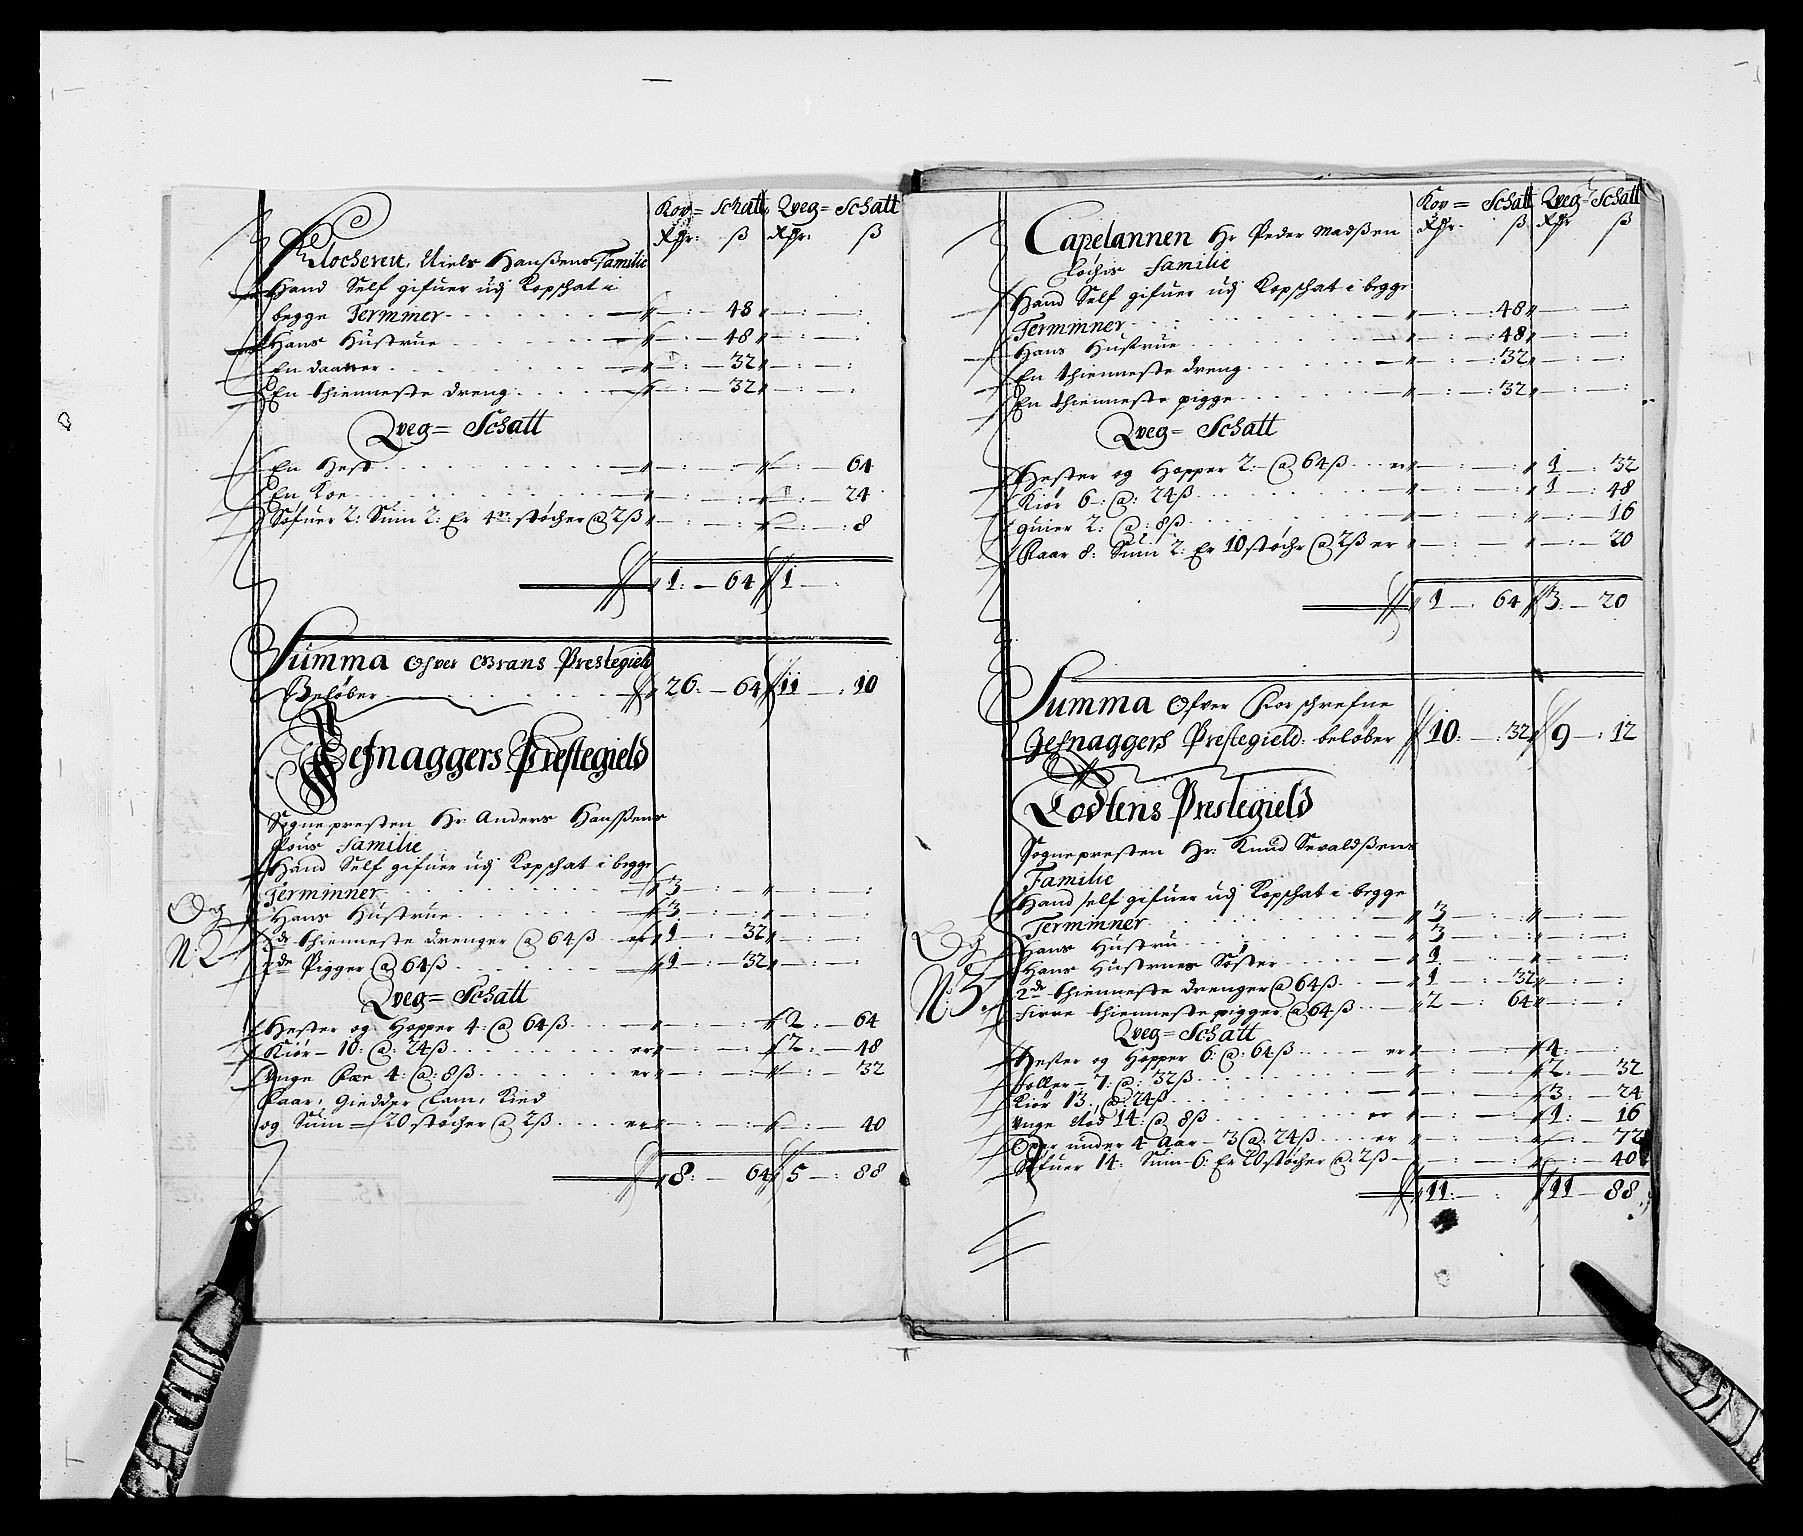 Kop= Schatt, Qveg= Schatt
Rdr: ß Rdr: ß
Klocheren, Niels Hanßens Familie
Hand Self gifuer udj Kopschat i
begge Terminer - 48
Hans Hustrue - 48
En daatter - 32
En thienneste dreng - 32
Qveg= Schatt
En Hest - 64
En Koe - 24
Søfuer 2: Suin 2: Er 4re støcher @ 2ß - 8
1: — 64 1 —
Summa Ofver Grans Prestegield
Beløber 26: — 64 11 —: 10
Jefnaggers Prestegield
Sognepresten Hr: Anders Hanßens
Familie
Hand Self gifuer udj Kopschat i begge
Terminner 3
Hans Hustrue 3
2de thienneste drenger @ 64ß er 1 — 32
N: 2
2de Pigger @ 64ß 1 — 32
Qveg= Schatt
Hester og Hopper 4: @ 64ß 2: — 64
Kiør - 10: @: 24ß er 2: — 48
Unge Fæe 4: @: 8ß er — 32
Faar, Giedder Lam, Kied
og Suin - 20 støcher @ 2ß er 40
8: — 64 5 —: 88
Kop= Schatt Qveg= Schatt
Rdr. ß Rdr ß
Capelannen Hr Peder Madßen
Lochis Familie
Hand Self gifuer udj Kopschat i begge
Terminner 48
Hans Hustrue 48
En thienneste dreng 32
En thienneste pigge 32
Qveg= Schatt
Hester og Hopper 2: @ 64ß er 1 —: 32
Kiør 6: @: 24ß 1 —: 48
quier 2: @: 8ß 16
Faar 8: Suin 2: Er 10 støchr @ 2ß er 20
1 —: 64 3: — 20
Summa Ofver Forschrefne
Jefnaggers Prestegield: beløber 10: —: 32 9 —: 12
Todtens Prestegield
Sognepresten Hr: Knud Sevaldßens
Familie
Hand self gifuer udj Kopschat i begge
Terminner 3
Hans Hustru 3
Hans Hustrues Søster 1
N: 3
2de thienneste drenger @ 64ß 1 —: 32
firre thienneste pigger @ 64ß 2 —: 64
Qveg= Schatt
Hester og Hopper 6: @: 64ß er 4: —
foller - 7: @: 32ß 2: — 32
Kiør 13: @: 24ß 3: — 24
Unge Nød 14: @ 8ß er 1: — 16
under 4 Aar - 3 @: 24ß er 72
Søfuer 14: Suin 6: Er 20 støcher @: 2ß 40
11: — 11 — 88